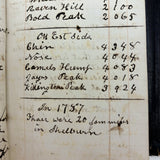 Raven Hill 2100
Bold Peak 2065
On East Side
Chin 4348
Nose 4044
Camels Hump 4083
Jays Peak 4018
Killington Peak 3924
In 1787
There were 20 families
in Shelburn